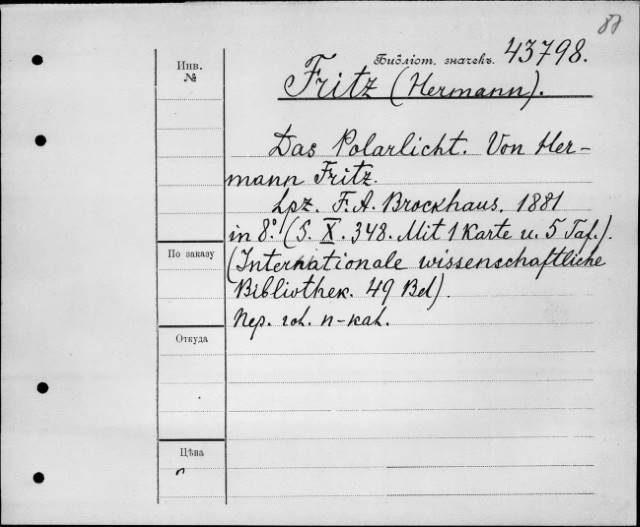 87
Библіот. значекъ. 43798.
Инв.
№
Fritz (Hermann).
Das Polarlicht. Von Her-
mann Fritz.
Lpz. F. A. Brockhaus. 1881
in 8.° (S. X. 348. Mit 1 Karte u. 5 Taf.).
По заказу
(Internationale wissenschaftliche
Bibliothek. 49 Bd).
Пер. гол. п-каж.
Откуда
Цѣна